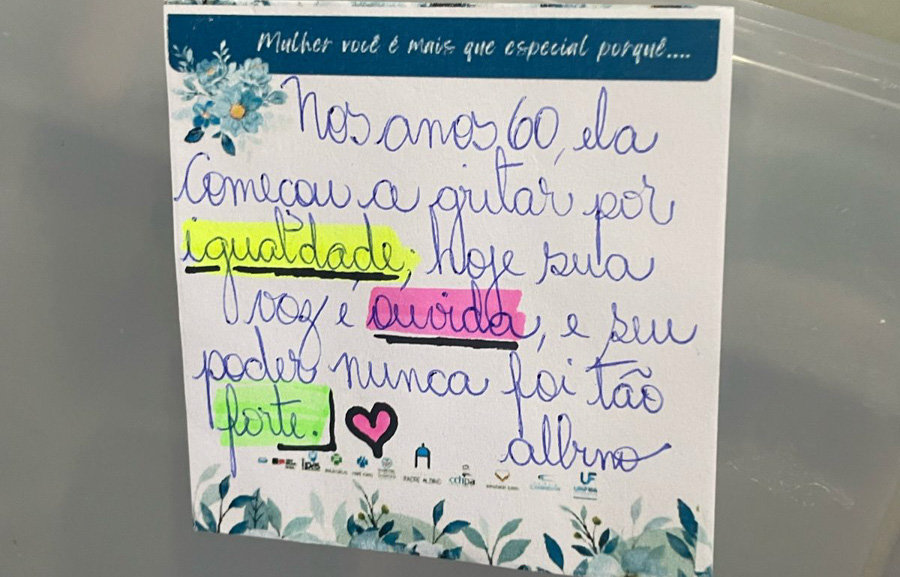 Mulher você é mais que especial porquê....
Nos anos 60, ela
Começou a gritar por
igualdade, hoje sua
voz é ouvida, e seu
poder nunca foi tão
forte.
albino
PADRE ALBINO